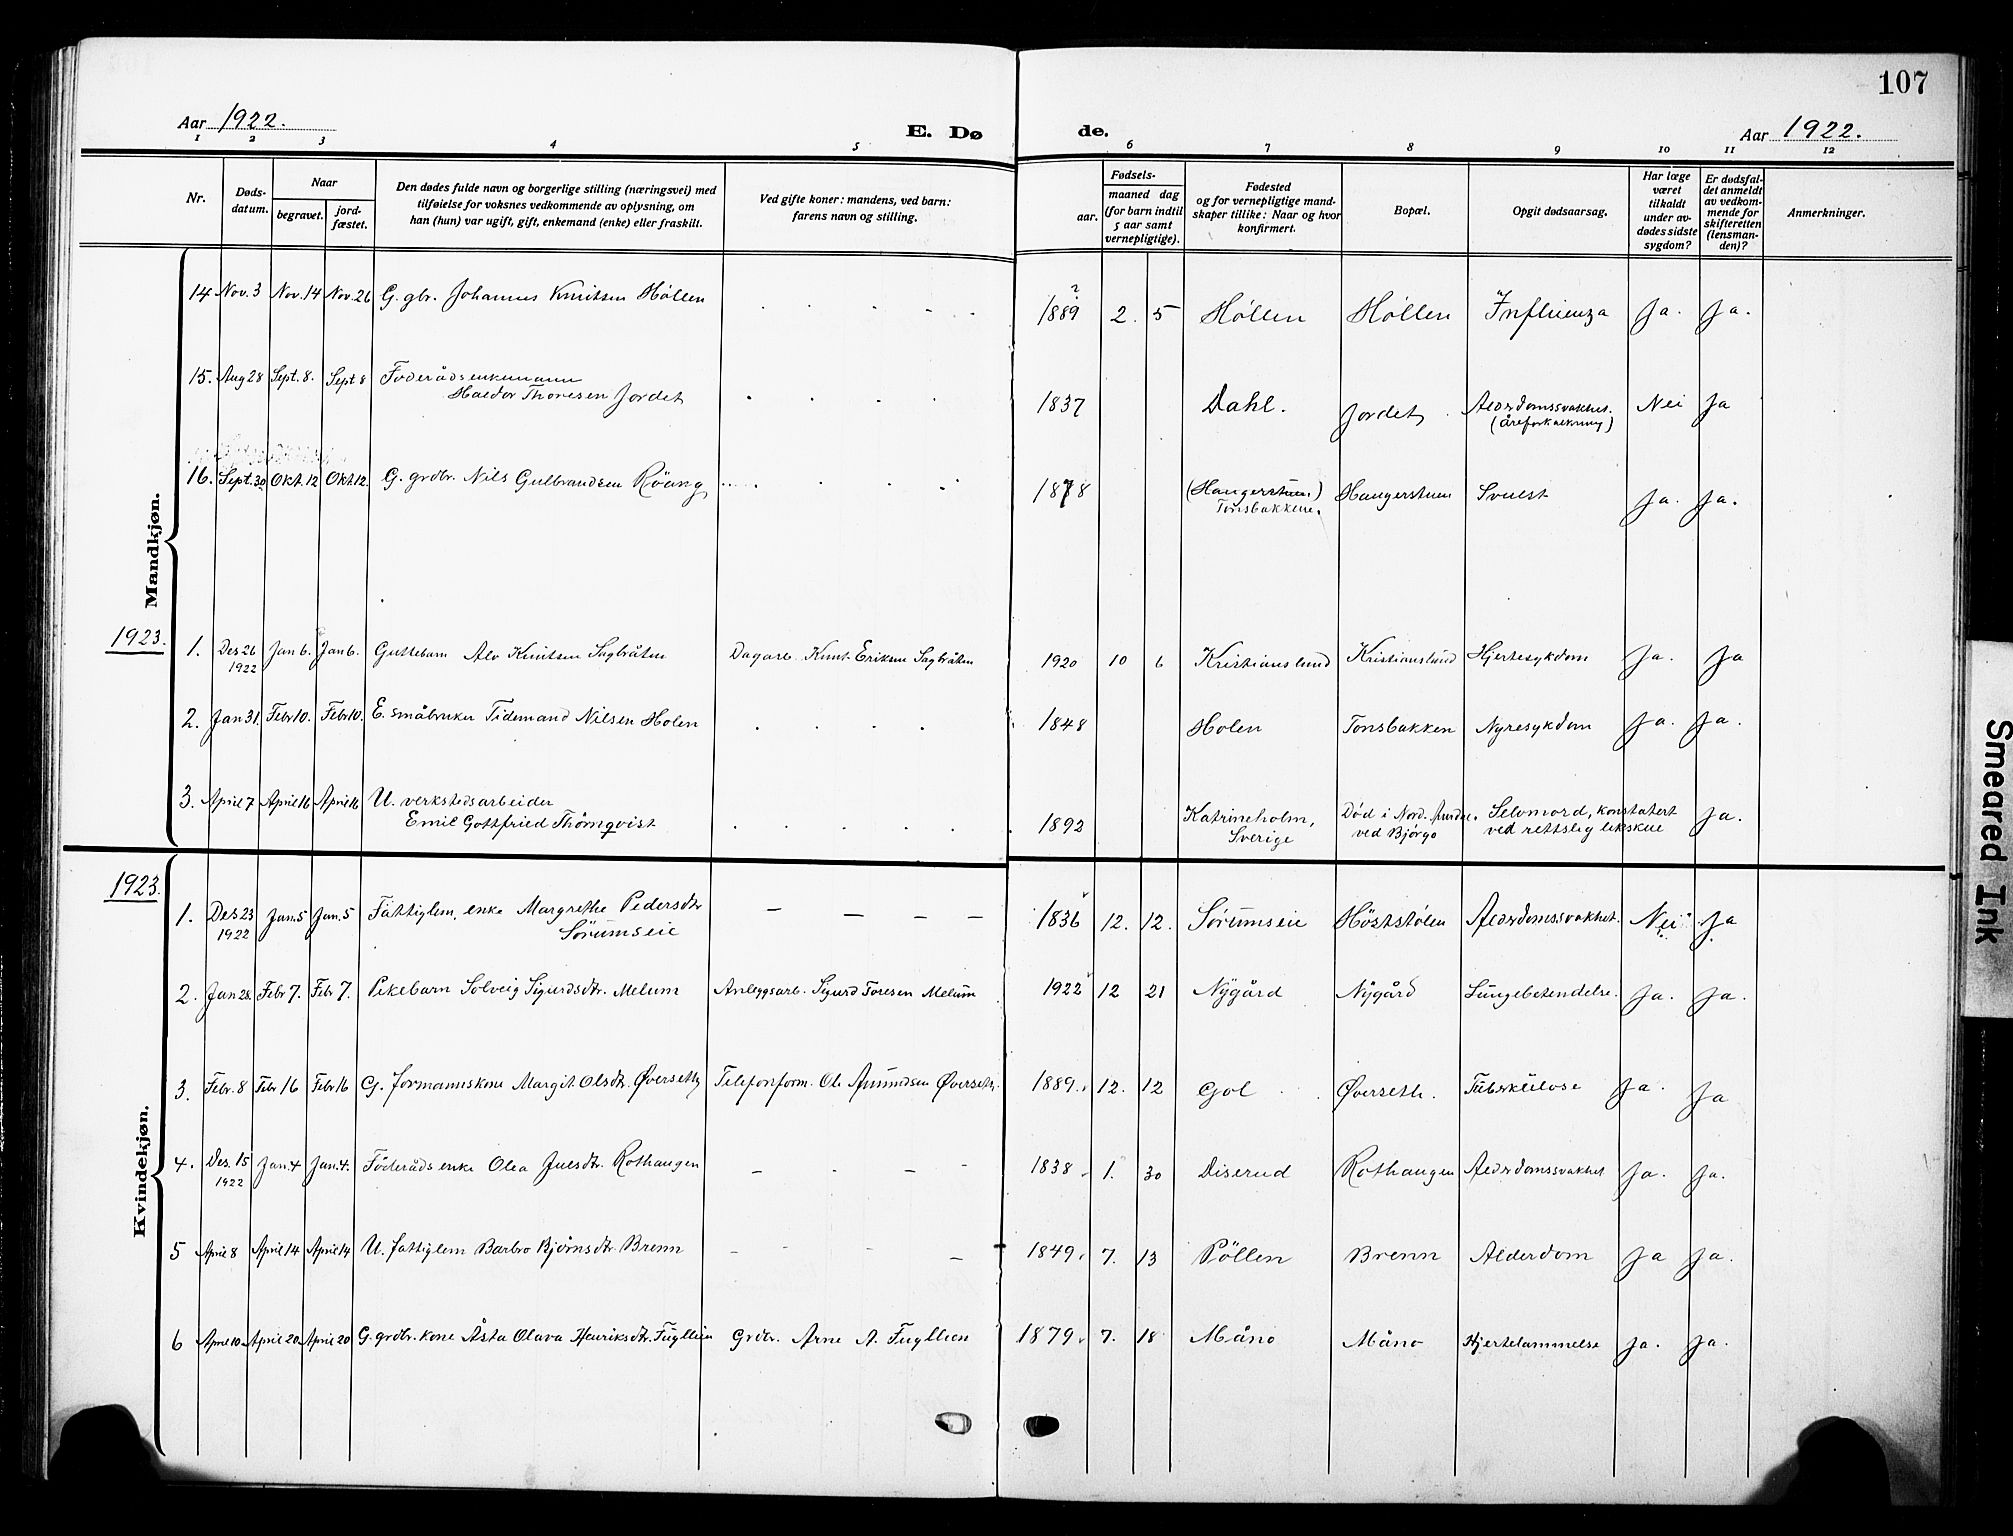 107
Aar 1922. E. Dø de. Aar 1922.
1 2 3 4 5 6 7 8 9 10 11 12
Nr. Døds-datum. Naar begravet. jord-fæstet. Den dødes fulde navn og borgerlige stilling (næringsvei) med tilføielse for voksnes vedkommende av oplysning, om han (hun) var ugift, gift, enkemand (enke) eller fraskilt. Ved gifte koner: mandens, ved barn: farens navn og stilling. Fødsels- aar. maaned dag (for barn indtil 5 aar samt vernepligtige). Fødested og for vernepligtige mand-skaper tillike: Naar og hvor konfirmert. Bopæl. Opgit dødsaarsag. Har læge været tilkaldt under av-dødes sidste sygdom? Er dødsfal-det anmeldt av vedkom-mende for skifteretten (lensman-den)? Anmerkninger.
Mandkjøn.
14 Nov. 3 Nov. 14 Nov. 26 G. gbr. Johannes Knutsen Höllen 1889 ? 2. 5 Höllen Höllen Influenza Ja. Ja.
15. Aug 28 Sept. 8. Sept 8 Föderådsenkemann
Haldor Thoresen Jordet 1837 Dahl. Jordet Alderdomssvakhet. Nei Ja
(åreforkalkning)
16. Sept. 30 Okt. 12 Okt. 12 G. grdbr. Nils Gulbrandsen Röang 1878 (Haugerstuen) Haugerstuen Svulst Ja. Ja.
Tonsbakkene.
1923.
1. Des 26 Jan 6. Jan 6. Guttebarn Alv Knutsen Sagbråten Dagarb. Knut Eriksen Sagbråten 1920 10 6 Kristianslund Kristianslund Hjertesykdom Ja. Ja
1922
2. Jan 31. Febr 10. Febr 10. E. småbruker Tidemand Nilsen Holen 1848 Holen Tonsbakken Nyresykdom Ja. Ja.
3. April 7 April 16 April 16 U. verkstedsarbeider
Emil Gottfried Thörnqvist 1892 Katrineholm, Död i Nord. Aurdal. Selvmord, konstatert Ja.
Sverige ved Bjørgo ved rettslig likskue
Kvindekjøn.
1923.
1. Des 23 Jan. 5 Jan. 5 Fattiglem, enke Margrethe Pedersdtr 1836 12. 12. Sörumseie Höststölen Alderdomssvakhet. Nei Ja
1922 Sörumseie
2. Jan 28. Febr 7. Febr 7. Pikebarn Solveig Sigurdsdtr. Melum Anleggsarb. Sigurd Toresen Melum 1922 12 21 Nygård Nygård Lungebetendelse. Ja. Ja.
3. Febr. 8 Febr 16 Febr 16 G. formannskone Margit Olsdtr. Øverseth Telefonform. Ole Amundsen Øverseth 1889. 12. 12 Gol Øverseth. Tuberkulose Ja. Ja
4. Des. 15 Jan. 4 Jan. 4. Föderådsenke Olea Julsdtr. Rothaugen 1838 1. 30 Diserud Rothaugen Alderdomssvakhet Ja. Ja.
1922
5 April 8 April 14 April 14 U. fattiglem Barbro Björnsdtr. Brenn 1849. 7. 13 Pöllen Brenn Alderdom Ja Ja.
6 April 10 April 20 April 20 G. grdbr. kone Åsta Olava Henriksdtr. Fugllien Grdbr. Arne A. Fugllien 1879. 7. 18 Måno Måno Hjertelammelse Ja. Ja.
Smeared Ink